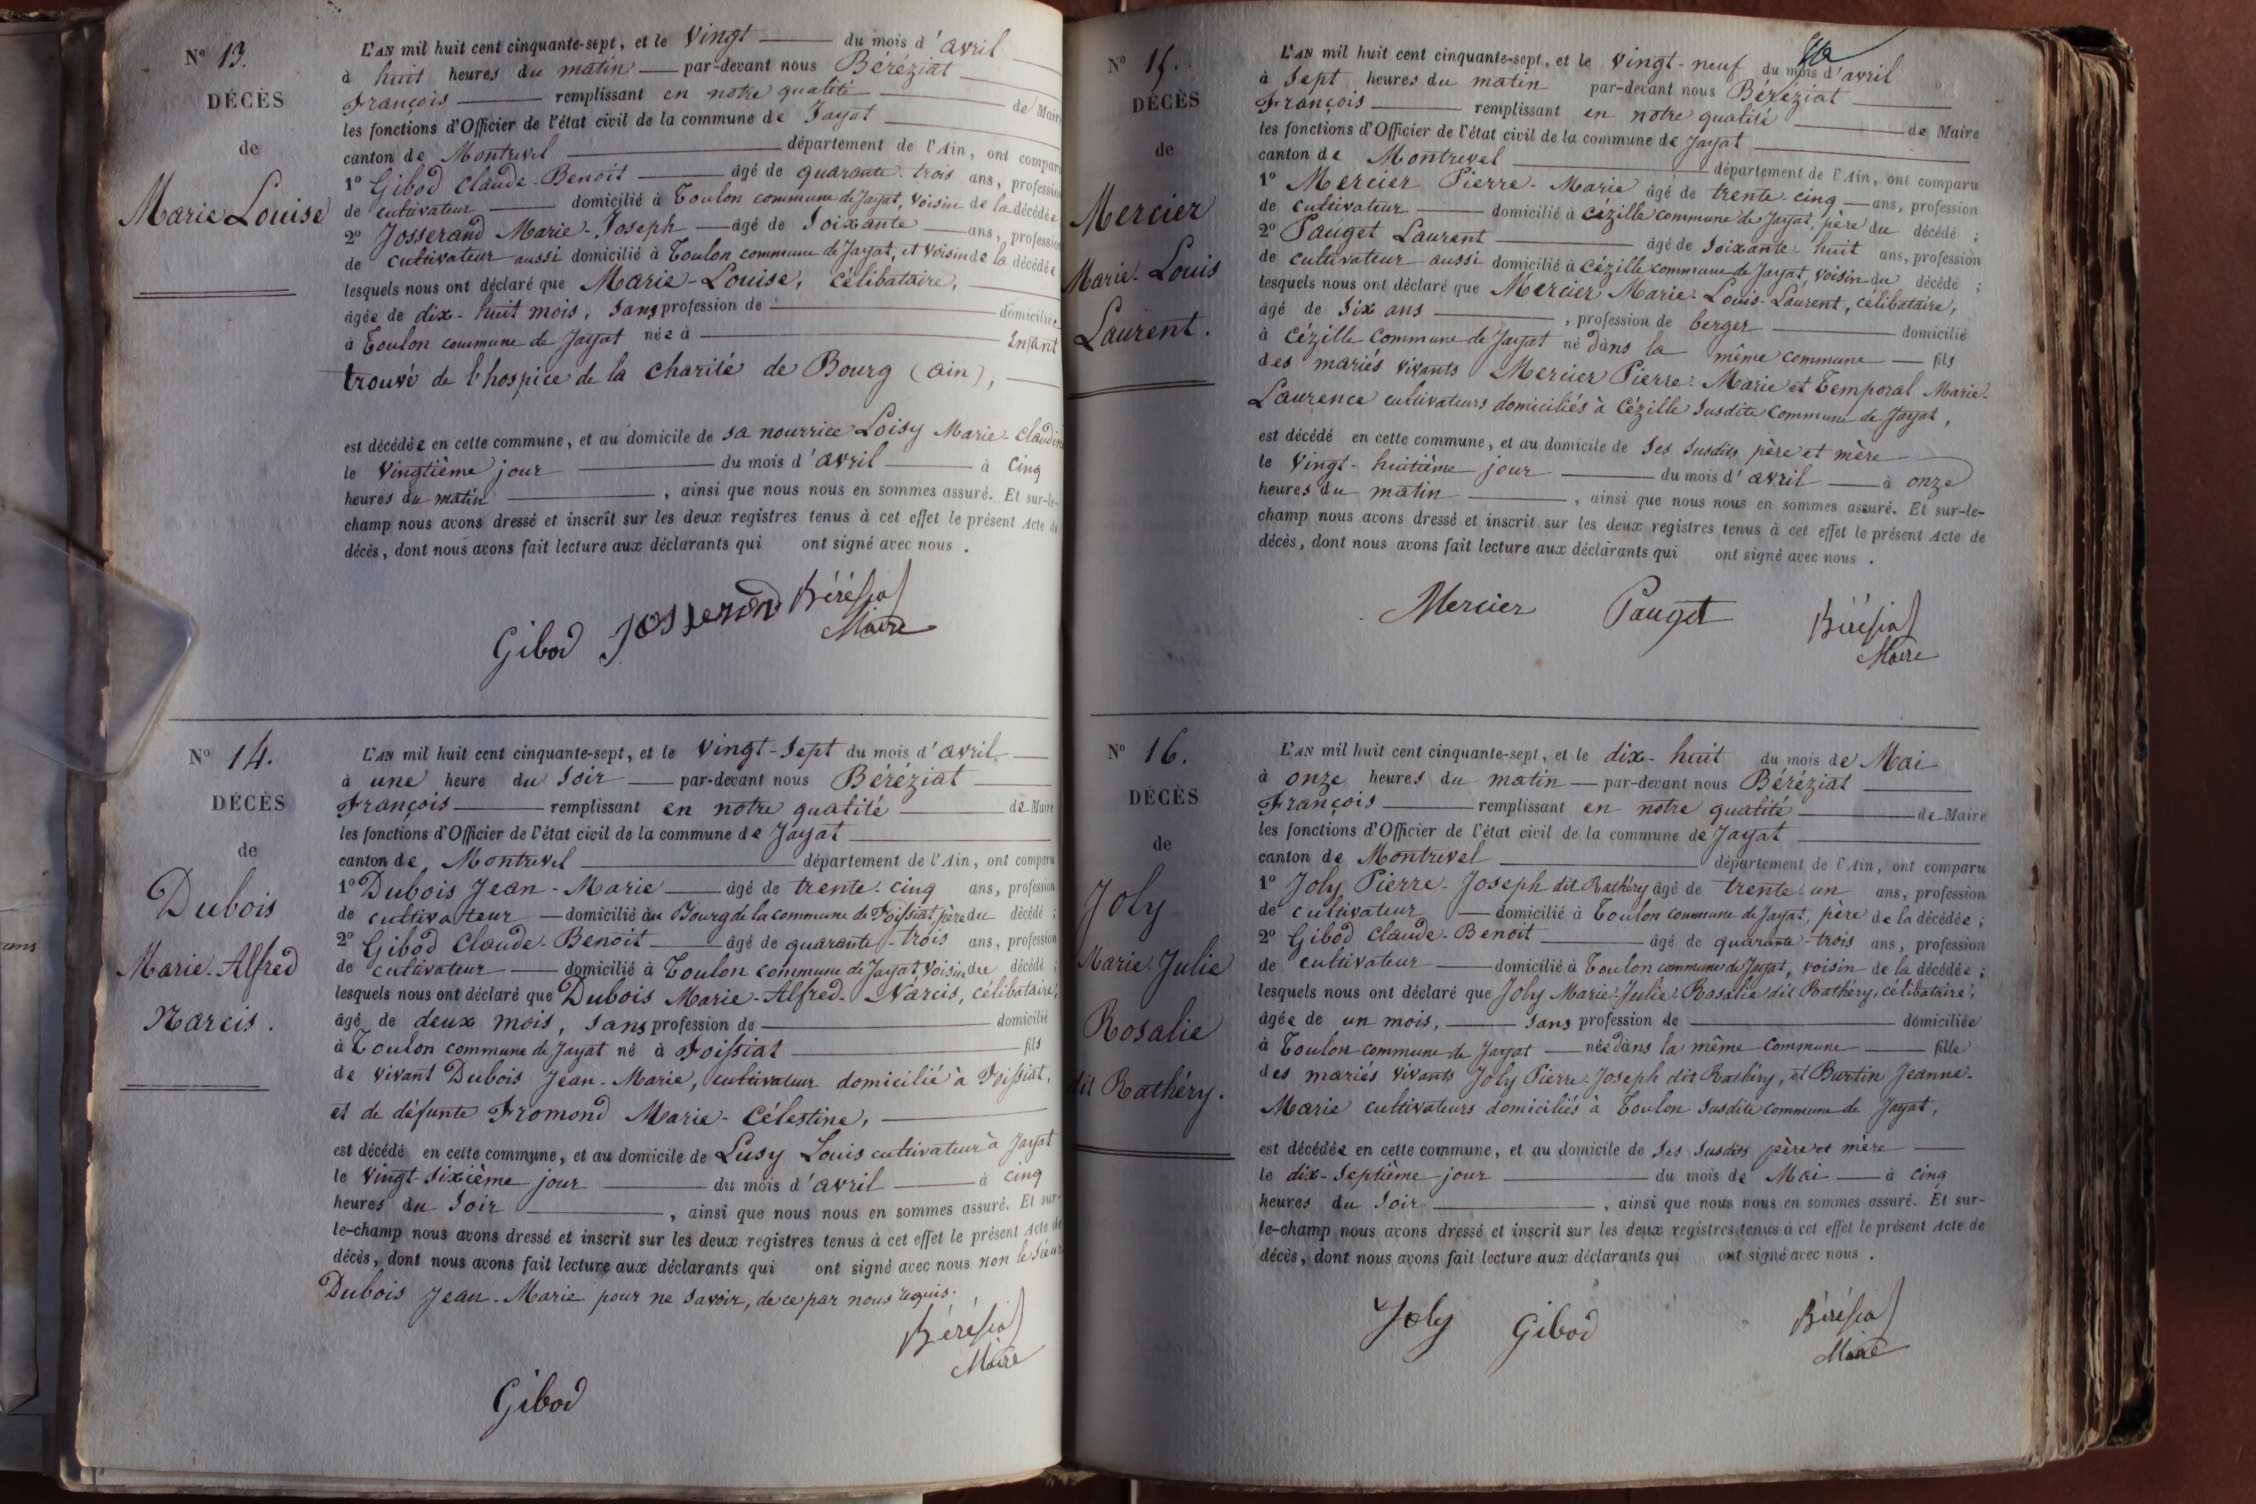 N° 13.
DÉCÈS
de
Marie Louise
L'AN mil huit cent cinquante-sept, et le vingt du mois d'avril
à huit heures du matin par-devant nous Béréziat
François remplissant en notre qualité de Maire
les fonctions d'Officier de l'état civil de la commune de Jayat
canton de Montrevel département de l'Ain, ont comparu
1° Gibod Claude-Benoit âgé de quarante-trois ans, profession
de cultivateur domicilié à Toulon commune de Jayat, voisin de la décédée
2° Josserand Marie-Joseph âgé de soixante ans, profession
de cultivateur aussi domicilié à Toulon commune de Jayat, et voisin de la décédée
lesquels nous ont déclaré que Marie-Louise, célibataire,
âgée de dix-huit mois, sans profession de domiciliée
à Toulon commune de Jayat née à Enfant
trouvé de l'hospice de la charité de Bourg (ain),
est décédée en cette commune, et au domicile de sa nourrice Loisy Marie-Claudine
le vingtième jour du mois d'avril à cinq
heures du matin, ainsi que nous nous en sommes assuré. Et sur-le-
champ nous avons dressé et inscrit sur les deux registres tenus à cet effet le présent Acte de
décès, dont nous avons fait lecture aux déclarants qui ont signé avec nous.
Gibod Josserand Béréziat
Maire
N° 14.
DÉCÈS
de
Dubois
Marie-Alfred
Narcis.
L'AN mil huit cent cinquante-sept, et le vingt-sept du mois d'avril
à une heure du soir par-devant nous Béréziat
François remplissant en notre qualité de Maire
les fonctions d'Officier de l'état civil de la commune de Jayat
canton de Montrevel département de l'Ain, ont comparu
1° Dubois Jean-Marie âgé de trente-cinq ans, profession
de cultivateur domicilié au Bourg de la commune de Foissiat, père du décédé;
2° Gibod Claude-Benoit âgé de quarante-trois ans, profession
de cultivateur domicilié à Toulon commune de Jayat, voisin du décédé;
lesquels nous ont déclaré que Dubois Marie-Alfred-Narcis, célibataire,
âgé de deux mois, sans profession de domicilié
à Toulon commune de Jayat né à Foissiat fils
de vivant Dubois Jean-Marie, cultivateur domicilié à Foissiat,
et de défunte Fromond Marie-Célestine,
est décédé en cette commune, et au domicile de Lusy Louis cultivateur à Jayat
le vingt-sixième jour du mois d'avril à cinq
heures du soir, ainsi que nous nous en sommes assuré. Et sur-
le-champ nous avons dressé et inscrit sur les deux registres tenus à cet effet le présent Acte de
décès, dont nous avons fait lecture aux déclarants qui ont signé avec nous non le sieur
Dubois Jean-Marie pour ne savoir, de ce par nous requis.
Béréziat
Maire
Gibod
N° 15.
DÉCÈS
de
Mercier
Marie-Louis
Laurent.
L'AN mil huit cent cinquante-sept, et le vingt-neuf du mois d'avril
à sept heures du matin par-devant nous Béréziat
François remplissant en notre qualité de Maire
les fonctions d'Officier de l'état civil de la commune de Jayat
canton de Montrevel département de l'Ain, ont comparu
1° Mercier Pierre-Marie âgé de trente-cinq ans, profession
de cultivateur domicilié à Cézille commune de Jayat, père du décédé;
2° Pauget Laurent âgé de soixante-huit ans, profession
de cultivateur aussi domicilié à Cézille commune de Jayat, voisin du décédé;
lesquels nous ont déclaré que Mercier Marie-Louis-Laurent, célibataire,
âgé de six ans, profession de berger domicilié
à Cézille commune de Jayat né dans la même commune fils
des mariés vivants Mercier Pierre-Marie et Temporal Marie-
Laurence cultivateurs domiciliés à Cézille susdite commune de Jayat,
est décédé en cette commune, et au domicile de ses susdits père et mère
le vingt-huitième jour du mois d'avril à onze
heures du matin, ainsi que nous nous en sommes assuré. Et sur-le-
champ nous avons dressé et inscrit sur les deux registres tenus à cet effet le présent Acte de
décès, dont nous avons fait lecture aux déclarants qui ont signé avec nous.
Mercier Pauget Béréziat
Maire
N° 16.
DÉCÈS
de
Joly
Marie-Julie
Rosalie
dit Rathéry.
L'AN mil huit cent cinquante-sept, et le dix-huit du mois de Mai
à onze heures du matin par-devant nous Béréziat
François remplissant en notre qualité de Maire
les fonctions d'Officier de l'état civil de la commune de Jayat
canton de Montrevel département de l'Ain, ont comparu
1° Joly Pierre-Joseph dit Rathéry âgé de trente-un ans, profession
de cultivateur domicilié à Toulon commune de Jayat, père de la décédée;
2° Gibod Claude-Benoit âgé de quarante-trois ans, profession
de cultivateur domicilié à Toulon commune de Jayat, voisin de la décédée;
lesquels nous ont déclaré que Joly Marie-Julie-Rosalie dit Rathéry, célibataire,
âgée de un mois, sans profession de domiciliée
à Toulon commune de Jayat née dans la même commune fille
des mariés vivants Joly Pierre-Joseph dit Rathéry, et Burtin Jeanne-
Marie cultivateurs domiciliés à Toulon susdite commune de Jayat,
est décédée en cette commune, et au domicile de ses susdits père et mère
le dix-septième jour du mois de Mai à cinq
heures du soir, ainsi que nous nous en sommes assuré. Et sur-
le-champ nous avons dressé et inscrit sur les deux registres tenus à cet effet le présent Acte de
décès, dont nous avons fait lecture aux déclarants qui ont signé avec nous.
Joly Gibod Béréziat
Maire